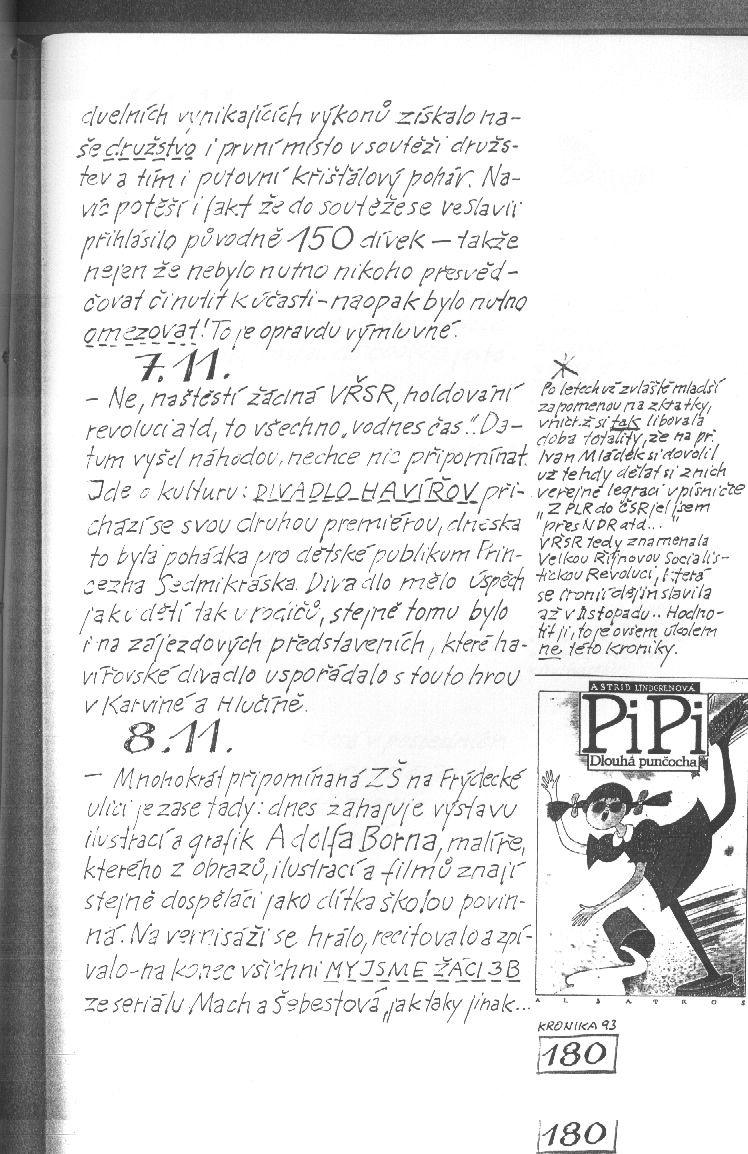 duelních vynikajících výkonů získalo na-
še družstvo i první místo v soutěži druž-
tev a tím i putovní křišťálový pohár. Na-
víc potěší i fakt že do soutěže se ve Slavii
přihlásilo původně 150 dívek – takže
nejen že nebylo nutno nikoho přesvěd-
čovat či nutit k účasti – naopak bylo nutno
omezovat! To je opravdu výmluvné.
7.11.
– Ne, naštěstí žádná VŘSR, holdování
revoluci atd, to všechno „vodnes čas". Da-
tum vyšel náhodou, nechce nic připomínat.
Jde o kulturu: DIVADLO HAVÍŘOV při-
chází se svou druhou premiérou, dneska
to byla pohádka pro dětské publikum Prin-
cezna Sedmikráska. Divadlo mělo úspěch
jak u dětí tak u rodičů, stejně tomu bylo
i na zájezdových představeních, které ha-
vířovské divadlo uspořádalo s touto hrou
v Karviné a Hlučíně.
8.11.
– Mnohokrát připomínaná ZŠ na Frýdecké
ulici je zase tady: dnes zahajuje výstavu
ilustrací a grafik Adolfa Borna, malíře,
kterého z obrazů, ilustrací a filmů znají
stejně dospěláci jako dítka školou povin-
ná. Na vernisáži se hrálo, recitovalo a zpí-
valo – na konec všichni MY JSME ŽÁCI 3B
ze seriálu Mach a Šebestová, jak taky jinak...
Po letech už zvláště mladší
zapomenou na zkratky,
v nichž si tak libovala
doba totality, že na př.
Ivan Mládek si dovolil
už tehdy dělat si z nich
veřejně legraci v písničce
„Z PLR do ČSR jel jsem
přes NDR atd..."
VŘSR tedy znamenala
Velkou Říjnovou Socialis-
tickou Revoluci, která
se ironií dějin slavila
až v listopadu.. Hodno-
tit ji, to je ovšem úkolem
ne této kroniky.
ASTRID LINDGRENOVÁ
PiPi
Dlouhá punčocha
ALBATROS
KRONIKA 93
180
180